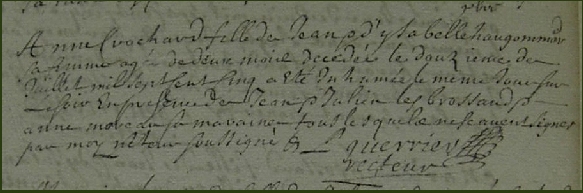 Anne Crochard fille de Jean & d'ysabelle haugommar
sa femme agé de deux mois decedée le douzieme de
Juillet mil sept cent cinq a eté Inhumée le meme Jour sur
le soir En presence de Jean & Julien les brossauds
anne moreau sa maraine tous lesquels ne scavent signer
par moy recteur soussigné &
L guerrier
recteur